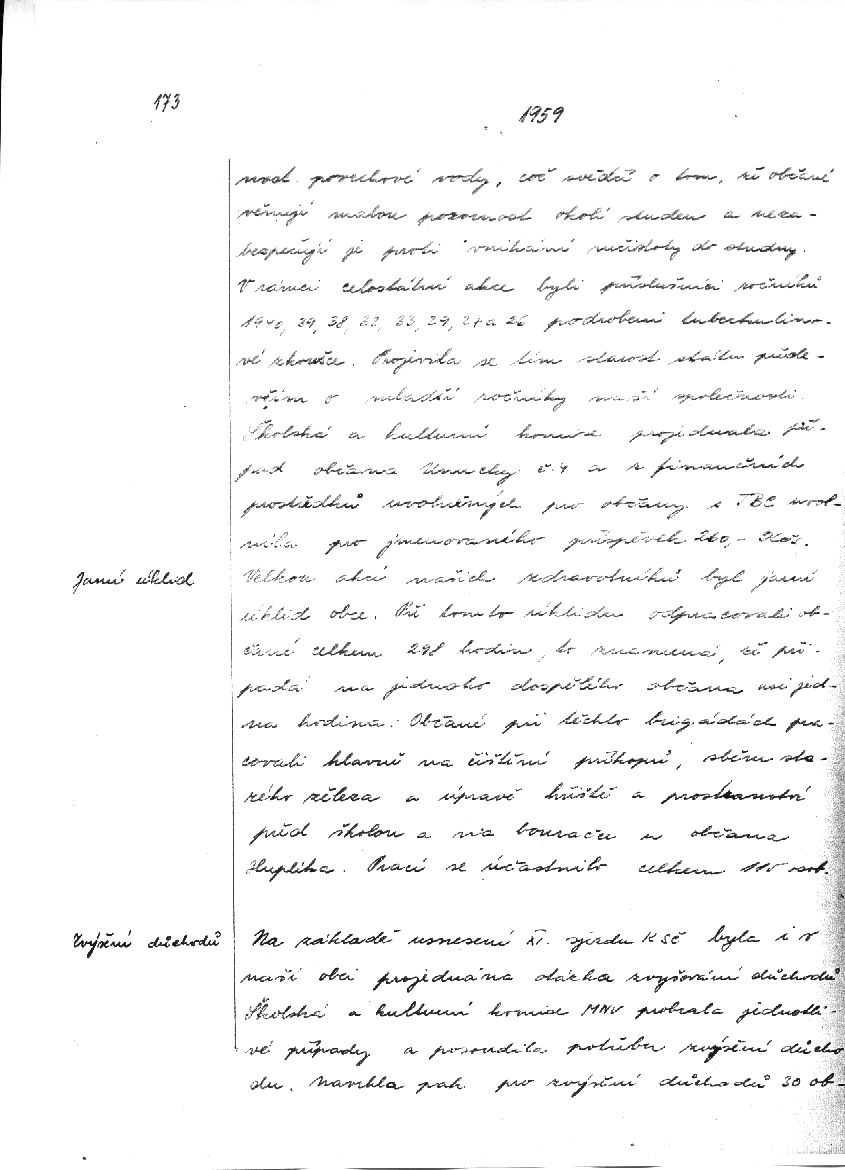 173
1959
nost povrchové vody, což svědčí o tom, že občané
věnují malou pozornost okolí studen a neza-
bezpečují je proti vnikání nečistoty do studny.
V rámci celostátní akce byli příslušníci ročníků
1940, 39, 38, 33, 29, 27 a 26 podrobeni tuberkulino-
vé zkoušce. Projevila se tím starost státu přede-
vším o mladší ročníky naší společnosti.
Školská a kulturní komise projednala pří-
pad občana č. 4 a z finančních
prostředků uvolněných pro občany s TBC uvol-
nila pro jmenovaného příspěvek 260,- Kčs.
Jarní úklid
Velkou akcí našich zdravotníků byl jarní
úklid obce. Při tomto úklidu odpracovali ob-
čané celkem 298 hodin, to znamená, že při-
padá na jednoho dospělého občana asi jed-
na hodina. Občané při těchto brigádách pra-
covali hlavně na čištění příkopů, sběru sta-
rého železa a úpravě hřiště a prostranství
před školou a na bouračce u občana
Huplíka. Prací se účastnilo celkem 110 osob.
Zvýšení důchodů
Na základě usnesení XI. sjezdu KSČ byla i v
naší obci projednána otázka zvyšování důchodů
Školská a kulturní komise MNV probrala jednotli-
vé případy a posoudila potřebu zvýšení důcho
du. Navrhla pak pro zvýšení důchodů 30 ob-